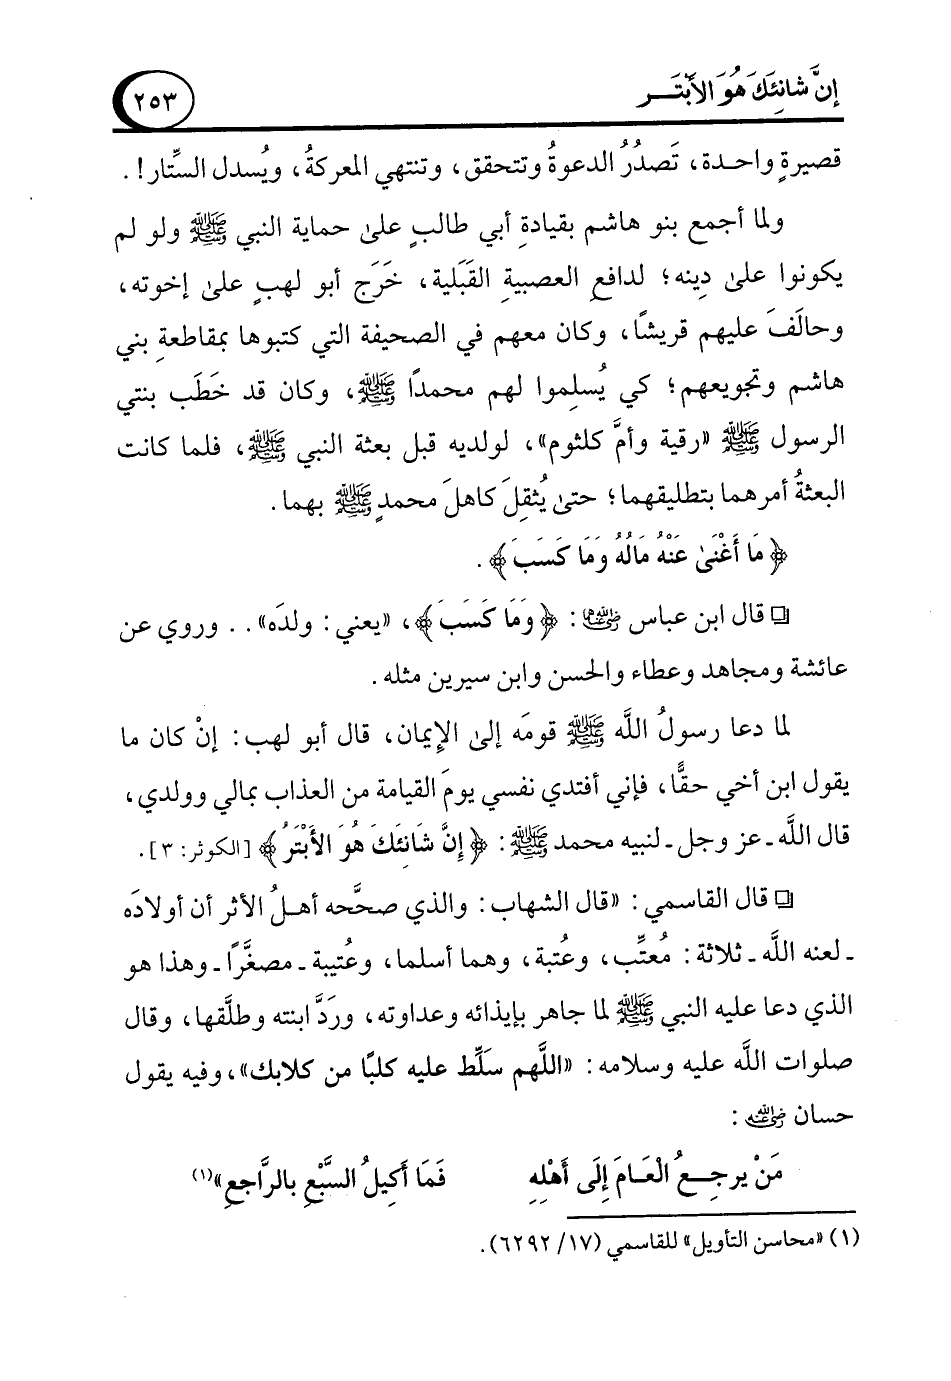 إنَّ شانِئَكَ هُوَ الأبتَـــر
٢٥٣
قصيرةٍ واحـدة، تَصدُرُ الدعوةُ وتتحقق، وتنتهي المعركةُ، ويُسدل السِّتار!.
ولما أجمع بنو هاشم بقيادةِ أبي طالبٍ علىٰ حماية النبي ﷺ ولو لم
يكونوا علىٰ دِينه؛ لدافعِ العصبيةِ القَبَلية، خَرَج أبو لهبٍ علىٰ إخوته،
وحالَفَ عليهم قريشًا، وكان معهم في الصحيفة التي كتبوها بمقاطعةِ بني
هاشم وتجويعهم؛ كي يُسلِموا لهم محمدًا ﷺ، وكان قد خَطَب بنتي
الرسول ﷺ «رقية وأمَّ كلثوم»، لولديه قبل بعثة النبي ﷺ، فلما كانت
البعثةُ أمرهما بتطليقهما؛ حتىٰ يُثقِلَ كاهلَ محمدٍ ﷺ بهما.
﴿مَا أَغْنَىٰ عَنْهُ مَالُهُ وَمَا كَسَبَ﴾.
❏ قال ابن عباس رضي الله عنهما: ﴿وَمَا كَسَبَ﴾، «يعني: ولدَه».. وروي عن
عائشة ومجاهد وعطاء والحسن وابن سيرين مثله.
لما دعا رسولُ اللَّه ﷺ قومَه إلىٰ الإيمان، قال أبو لهب: إنْ كان ما
يقول ابن أخي حقًّا، فإني أفتدي نفسي يومَ القيامة من العذاب بمالي وولدي،
قال اللَّه ـ عز وجل ـ لنبيه محمد ﷺ: ﴿إِنَّ شَانِئَكَ هُوَ الأَبْتَرُ﴾ [الكوثر: ٣].
❏ قال القاسمي: «قال الشهاب: والذي صحَّحه أهـلُ الأثر أن أولادَه
ـ لعنه اللَّه ـ ثلاثة: مُعتِّب، وعُتبة، وهما أسلما، وعُتيبة ـ مصغَّرًا ـ وهذا هو
الذي دعا عليه النبي ﷺ لما جاهر بإيذائه وعداوته، وردَّ ابنته وطلَّقها، وقال
صلوات اللَّه عليه وسلامه: «اللَّهم سَلِّط عليه كلبًا من كلابك»، وفيه يقول
حسان رضي الله عنه:
مَنْ يرجِـعُ الْعَـامَ إلَى أَهْلِهِ فَمَا أَكِيلُ السَّبْعِ بالرَّاجعِ»(١)
(١) «محاسن التأويل» للقاسمي (١٧/ ٦٢٩٢).